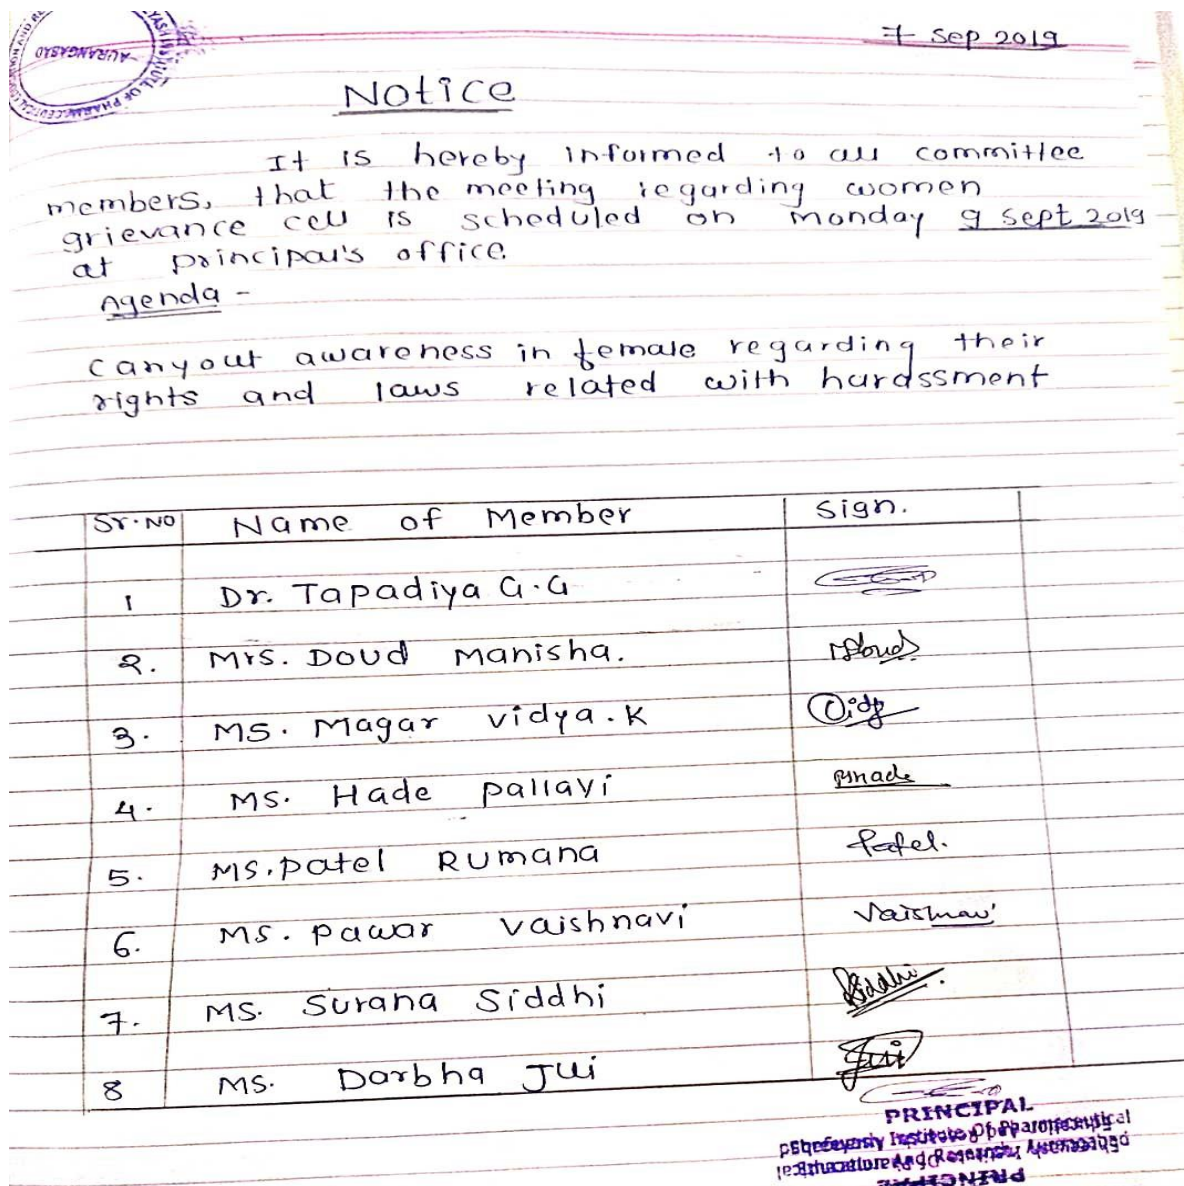 AURANGABAD
OF PHARMACEUTICAL
7 Sep 2019
Notice
It is hereby informed to all committee
members, that the meeting regarding women
grievance cell is scheduled on monday 9 Sept 2019
at principal's office
Agenda -
Carryout awareness in female regarding their
rights and laws related with harassment
Sr.No Name of Member Sign.
1 Dr. Tapadiya G.G
2. Mrs. Doud Manisha. Doud
3. Ms. Magar vidya.K
4. Ms. Hade pallavi Phade
5. Ms. Patel Rumana Patel.
6. Ms. Pawar Vaishnavi Vaishnavi
7. Ms. Surana Siddhi Siddhi
8 Ms. Darbha Jui Jui
PRINCIPAL
Institute Of Pharmaceutical
PRINCIPAL